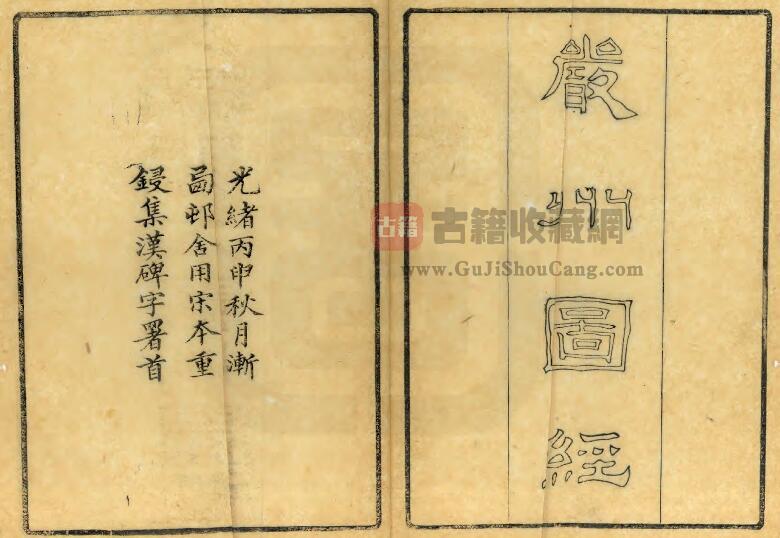 嚴州圖經
光緒丙申秋月漸
啚邨舍用宋本重
鋟集漢碑字署首
古籍
古籍收藏網
www.GuJiShouCang.com